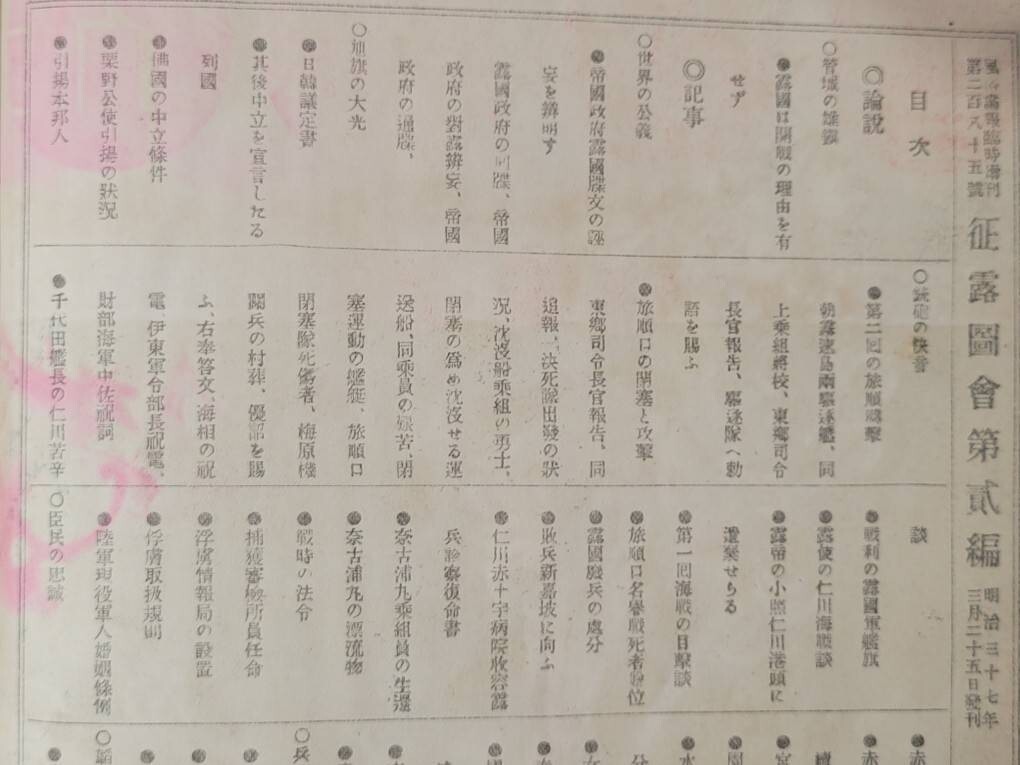 風俗畫報臨時增刊
第二百八十五號
征露圖會第貳編
明治三十七年
三月二十五日發刊
目次
◎論說
○管城の雄鎭
●露國は開戰の理由を有
せず
◎記事
○世界の公義
●帝國政府露國牒文の誣
妄を辨明す
露國政府の同牒、帝國
政府の對露辨妄、帝國
政府の通牒、
○旭旗の大光
●日韓議定書
●其後中立を宣言したる
列國
●佛國の中立條件
●栗野公使引揚の狀況
●引揚本邦人
○銃砲の快音
●第二回の旅順襲擊
朝霧速鳥兩驅逐艦、同
上乘組將校、東鄕司令
長官報告、驅逐隊へ勅
語を賜ふ
●旅順口の閉塞と攻擊
東鄕司令長官報告、同
追報、決死隊出發の狀
況、沈沒船乘組の勇士、
閉塞の爲め沈沒せる運
送船、同乘員の艱苦、閉
塞運動の艦艇、旅順口
閉塞隊死傷者、梅原機
關兵の村葬、優詔を賜
ふ、右奉答文、海相の祝
電、伊東軍令部長祝電、
財部海軍中佐祝詞
●千代田艦長の仁川苦辛
談
●戰利の露國軍艦旗
●露使の仁川海戰談
●露帝の小照仁川港頭に
遺棄せらる
●第一回海戰の目擊談
●旅順口名譽戰死者敍位
●露國廢兵の處分
●敗兵新嘉坡に向ふ
●仁川赤十字病院收容露
兵診察復命書
●奈古浦丸乘組員の生還
●奈古浦丸の漂流物
●戰時の法令
●捕獲審檢所員任命
●浮虜情報局の設置
●俘虜取扱規則
●陸軍現役軍人婚姻條例
○臣民の忠誠